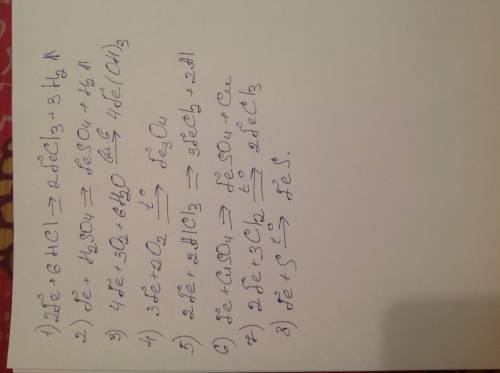 1) 2Fe + 6HCl => 2FeCl3 + 3H2 ↑
2) Fe + H2SO4 => FeSO4 + H2 ↑
3) 4Fe + 3O2 + 6H2O => 4Fe(OH)3
4) 3Fe + 2O2 t°=> Fe3O4
5) 2Fe + 2AlCl3 => 3FeCl2 + 2Al
6) Fe + CuSO4 => FeSO4 + Cu
7) 2Fe + 3Cl2 t°=> 2FeCl3
8) Fe + S t°=> FeS.